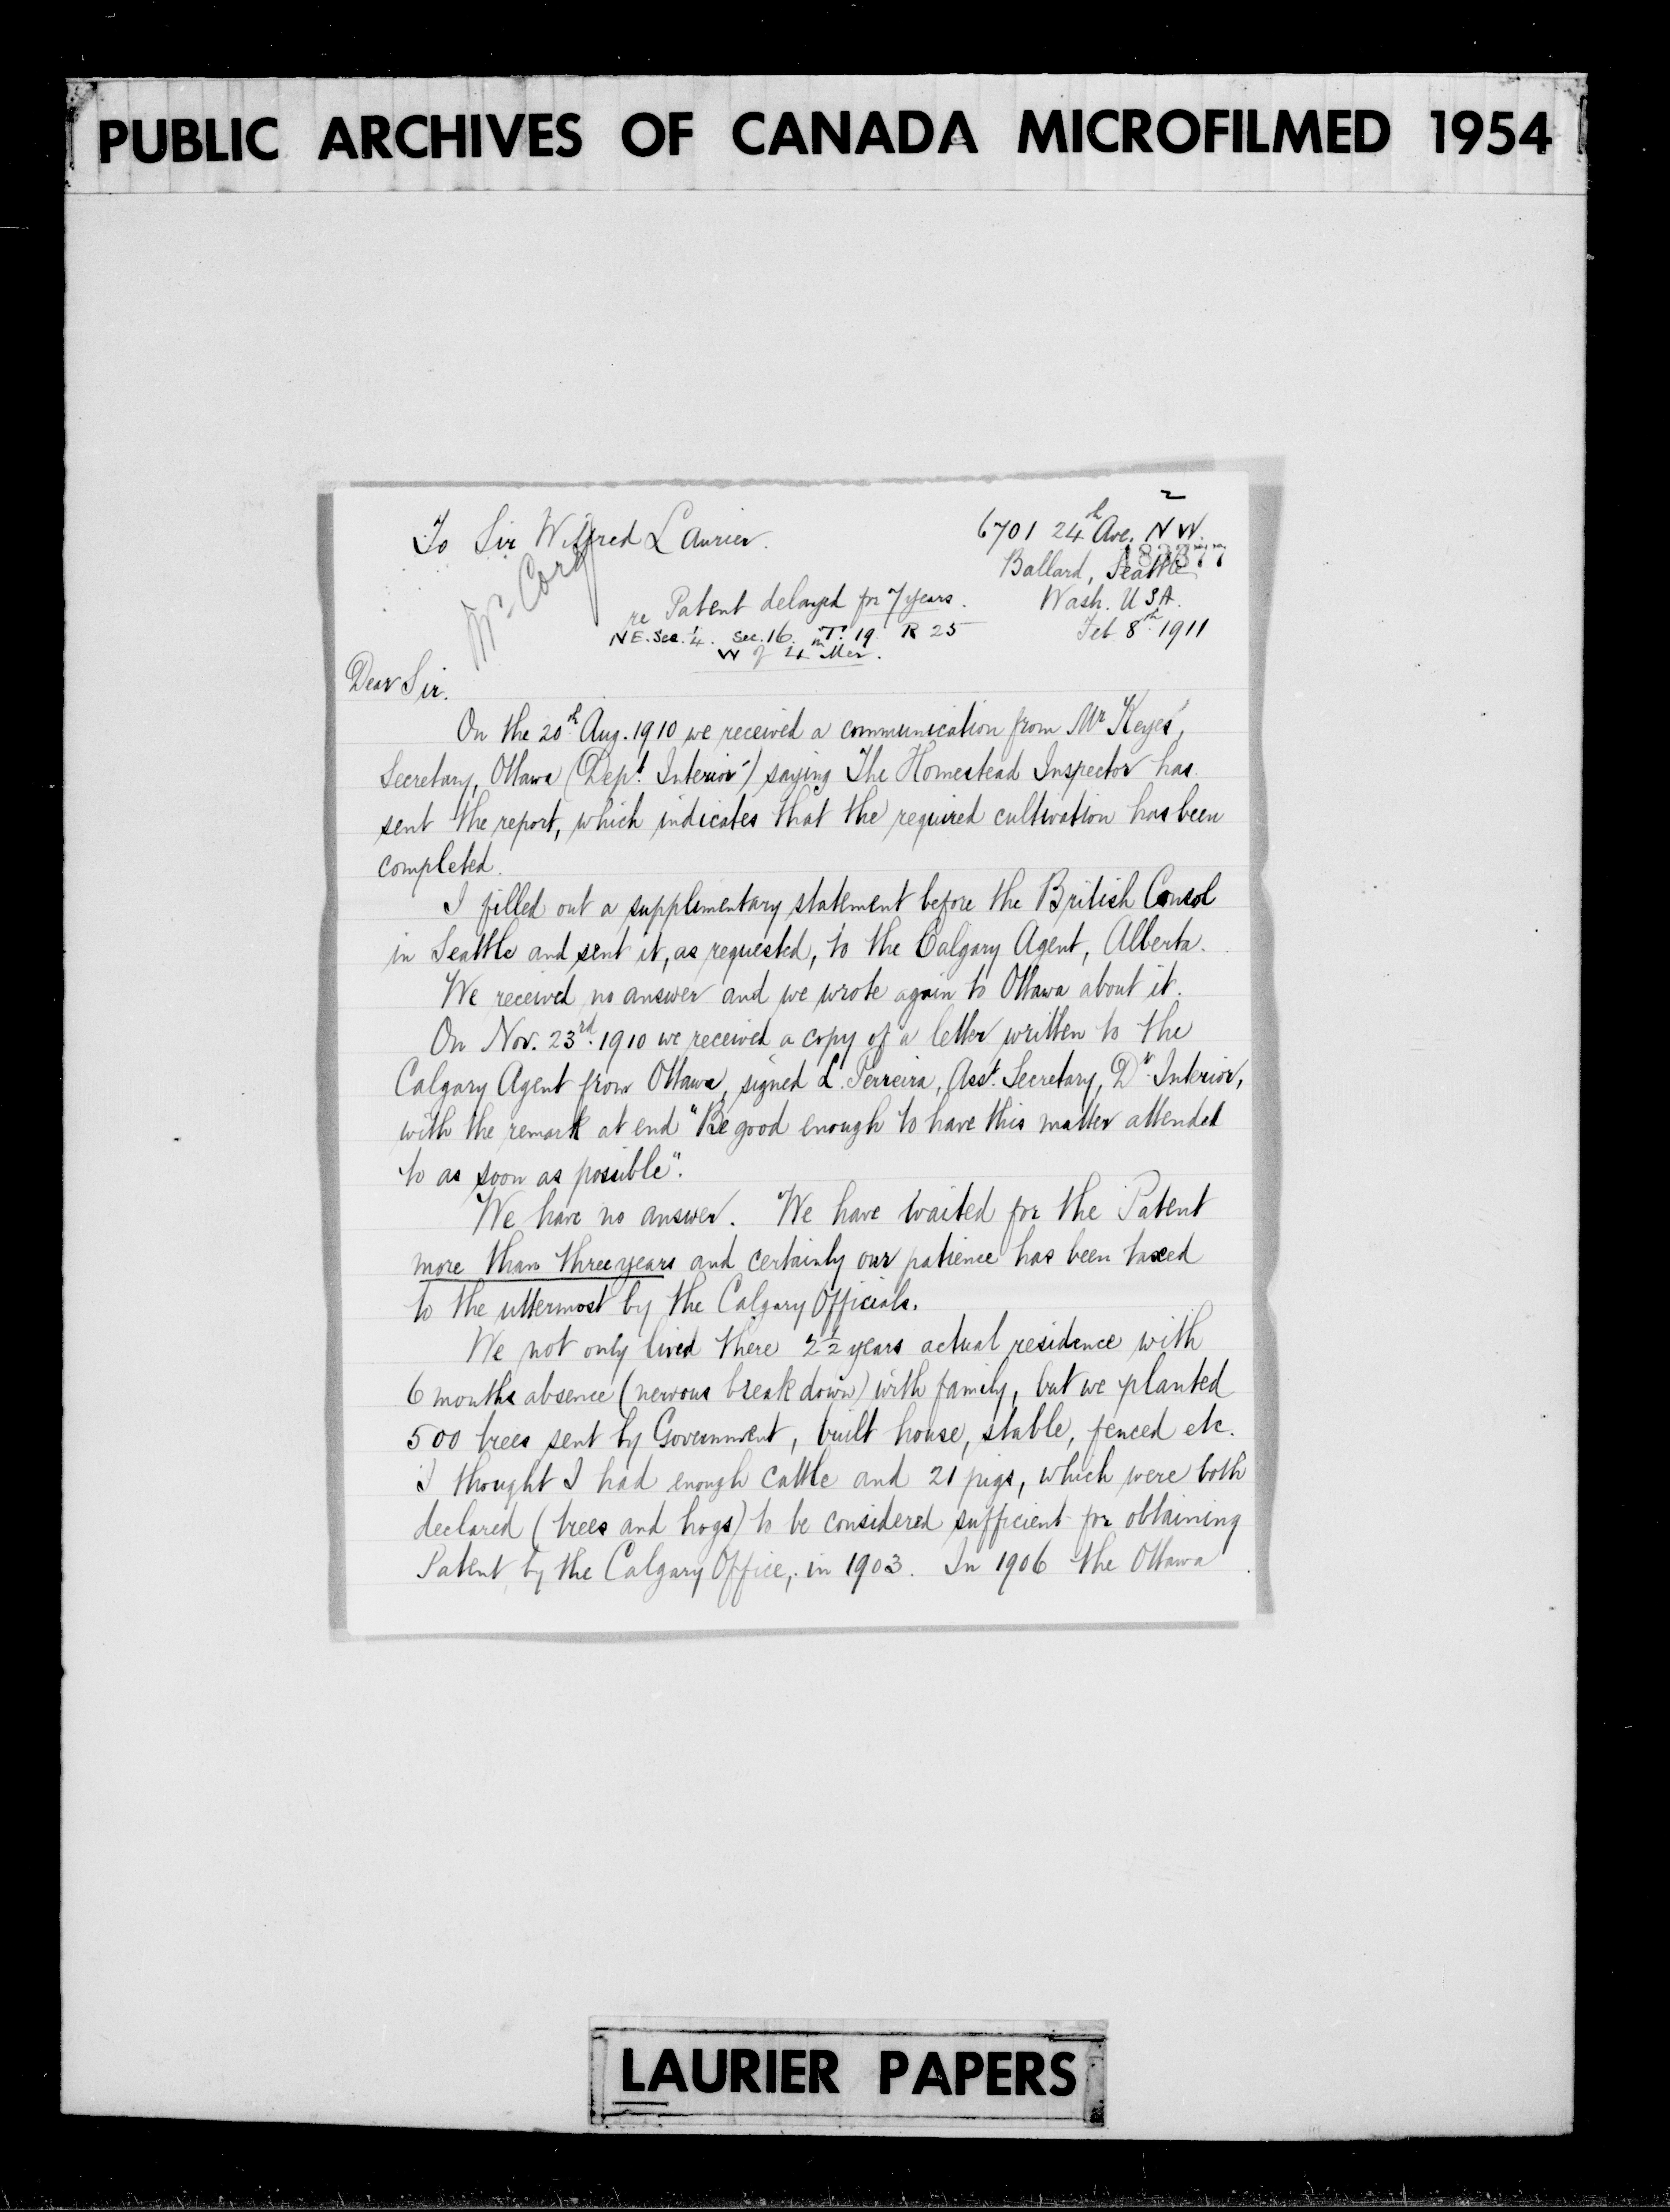 PUBLIC ARCHIVES OF CANADA MICROFILMED 1954
2
To Sir Wilfred Laurier.
6701 24th Ave. N W.
Ballard, Seattle
Wash. U S A.
Feb. 8th 1911
re Patent delayed for 7 years.
NE. Sec. 1/4. Sec. 16. in T. 19. R 25
W of 4 Mer.
Dear Sir.
On the 20th Aug. 1910 we received a communication from Mr Keyes,
Secretary, Ottawa (Dept. Interior) saying The Homestead Inspector has
sent the report, which indicates that the required cultivation has been
completed.
I filled out a supplimentary statement before the British Consol
in Seattle and sent it, as requested, to the Calgary Agent, Alberta.
We received no answer and we wrote again to Ottawa about it.
On Nov. 23rd. 1910 we received a copy of a letter written to the
Calgary Agent from Ottawa, signed L. Perreira, Asst. Secretary, Dt. Interior,
with the remark at end "Be good enough to have this matter attended
to as soon as possible".
We have no answer. We have waited for the Patent
more than three years and certainly our patience has been taxed
to the uttermost by the Calgary Officials.
We not only lived there 2 1/2 years actual residence with
6 months absence (nervous break down) with family, but we planted
500 trees sent by Government, built house, stable, fenced etc.
I thought I had enough cattle and 21 pigs, which were both
declared (trees and hogs) to be considered sufficient for obtaining
Patent by the Calgary Office, in 1903. In 1906 the Ottawa
LAURIER PAPERS